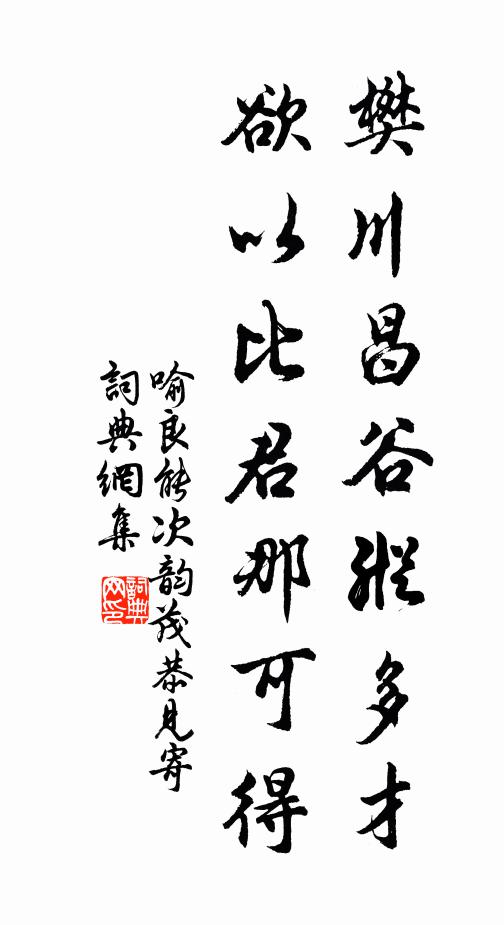 樊川昌谷縱多才
欲以比君那可得
喻良能次韵茂恭見寄
詞典網集
詞典網印